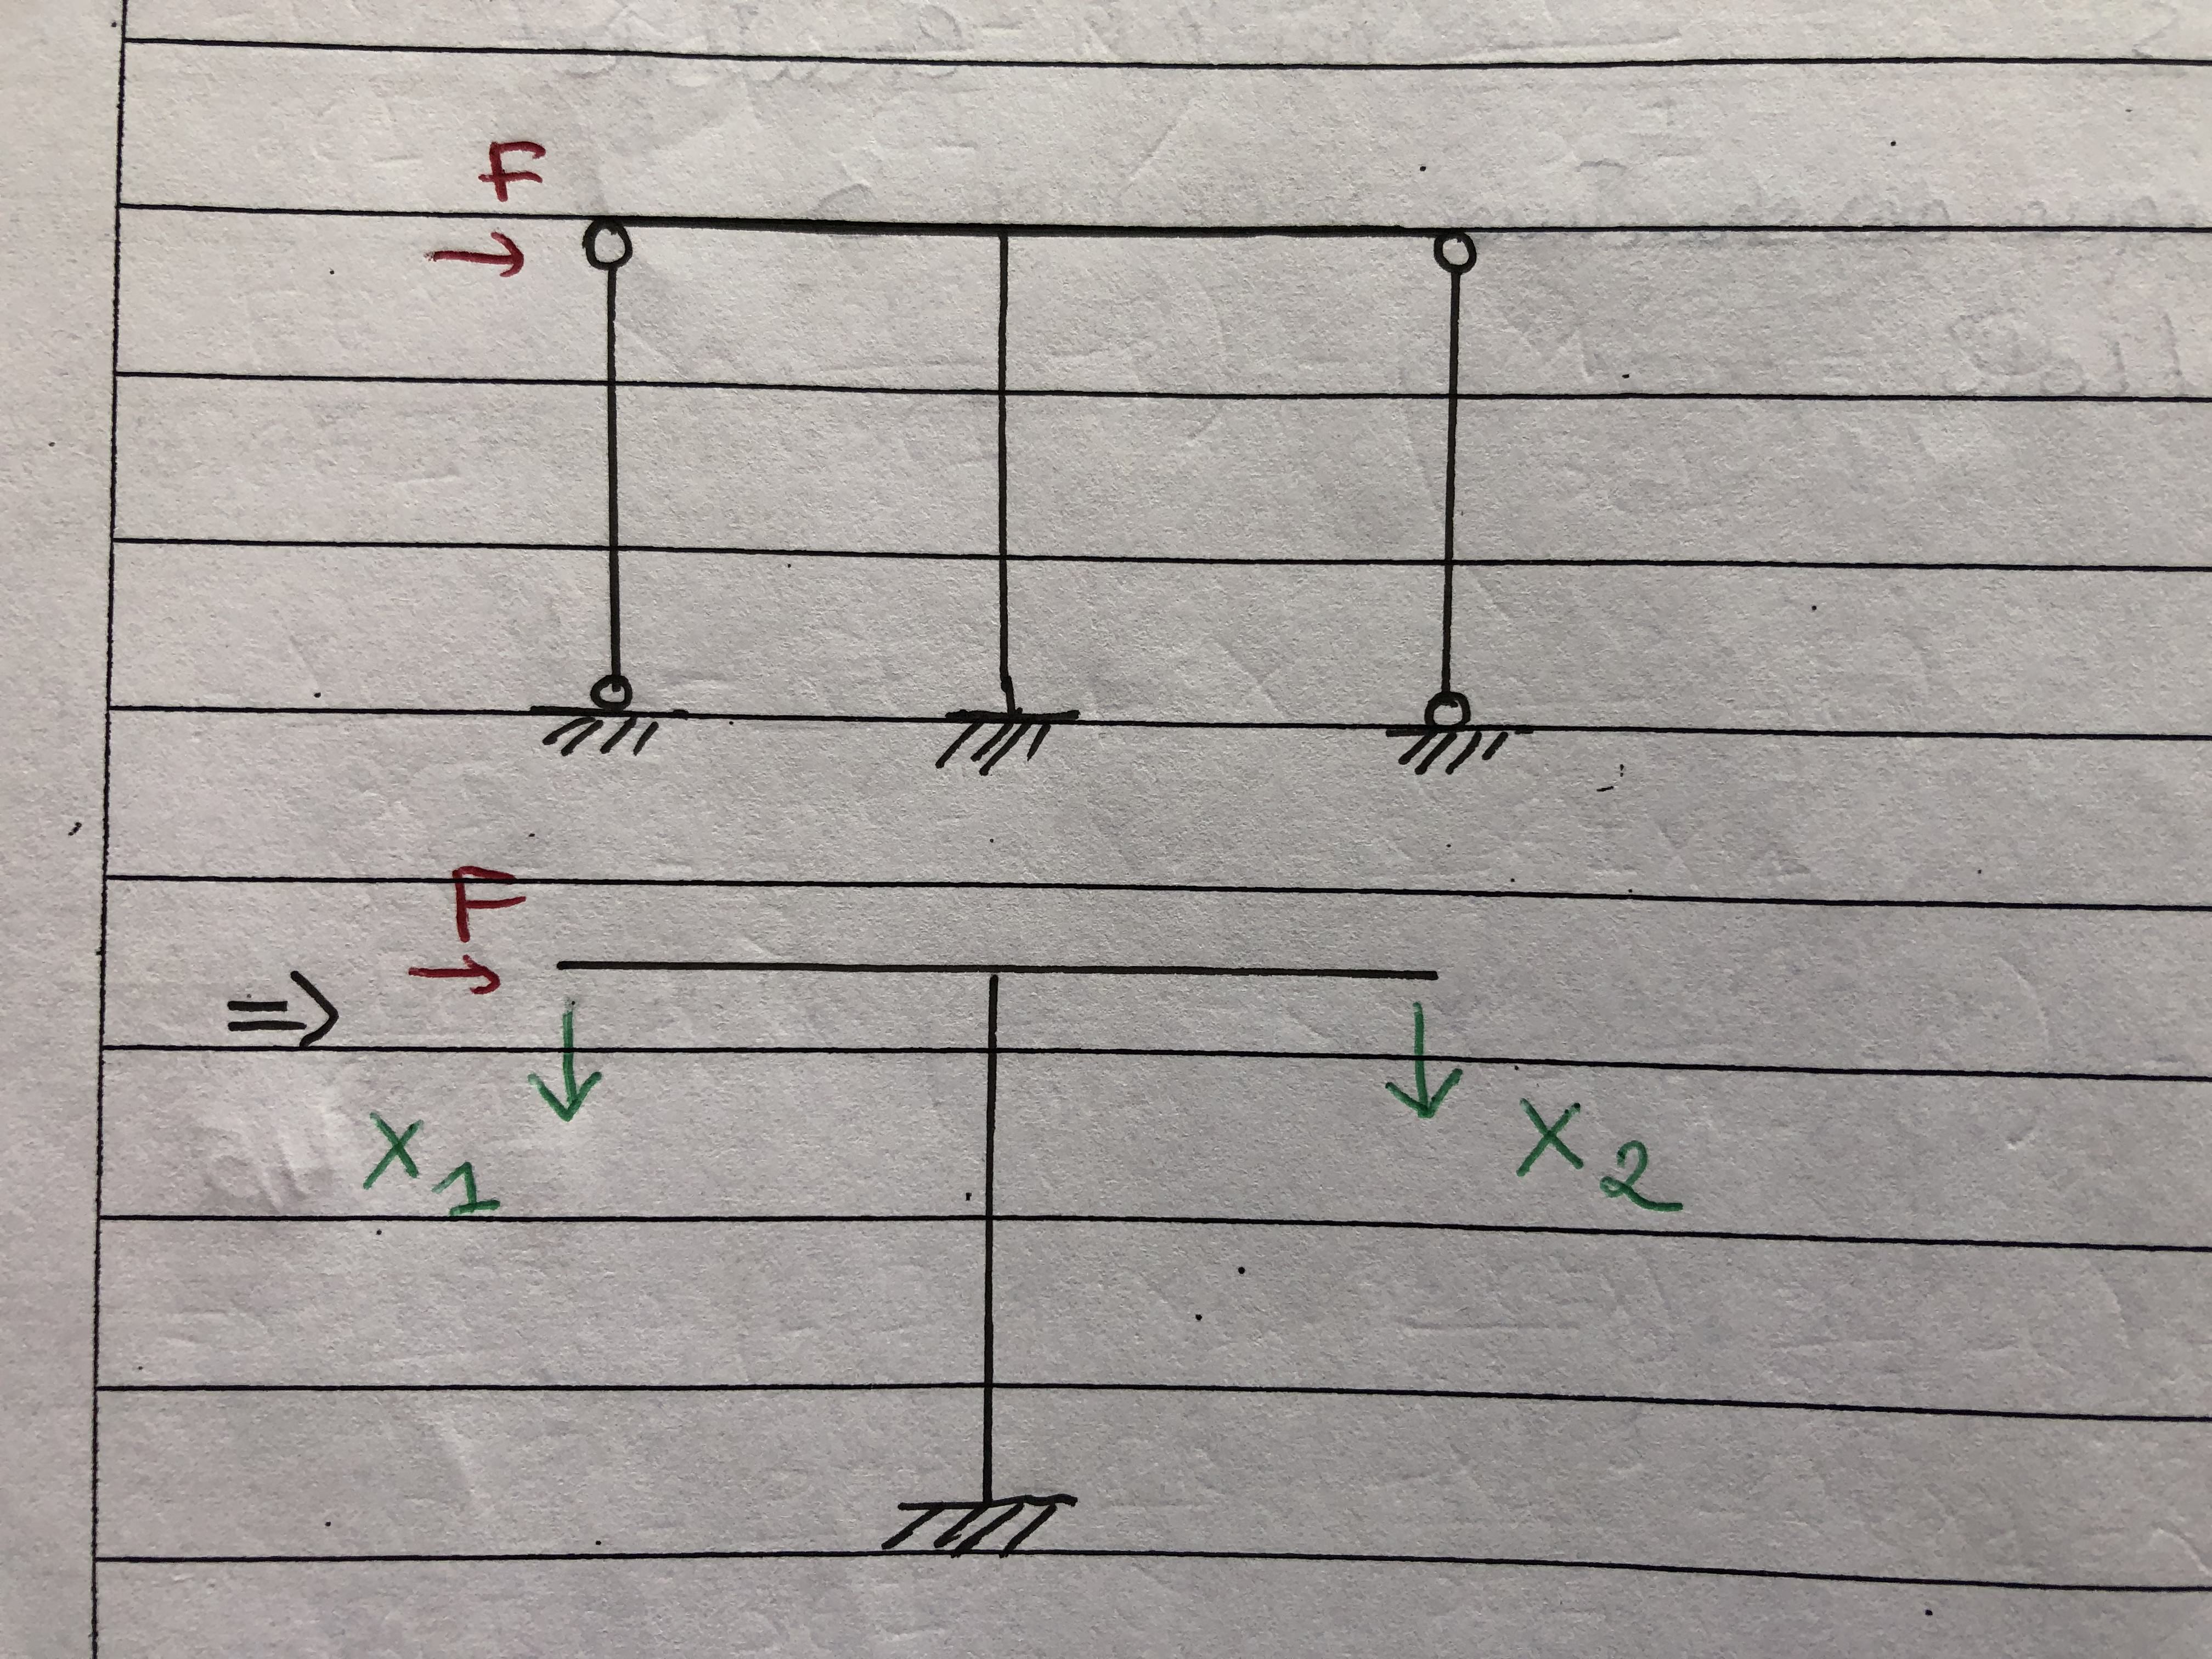 F
⇒ F
X1 X2